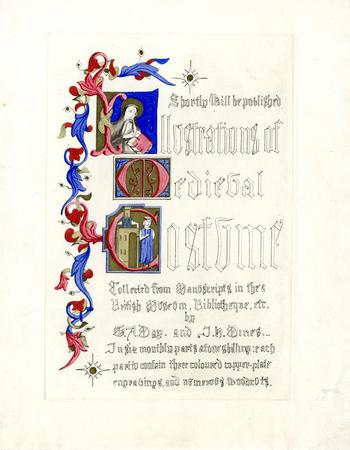 Shortly Will be published
Illustrations of
Medieval
Costume
Collected from Manuscripts in the
British Museum, Bibliotheque, etc.
by
T.A.Day. and J.H. Dines...
In six monthly parts at one shilling: each
part to contain three coloured copper-plate
engravings, and numerous woodcuts.